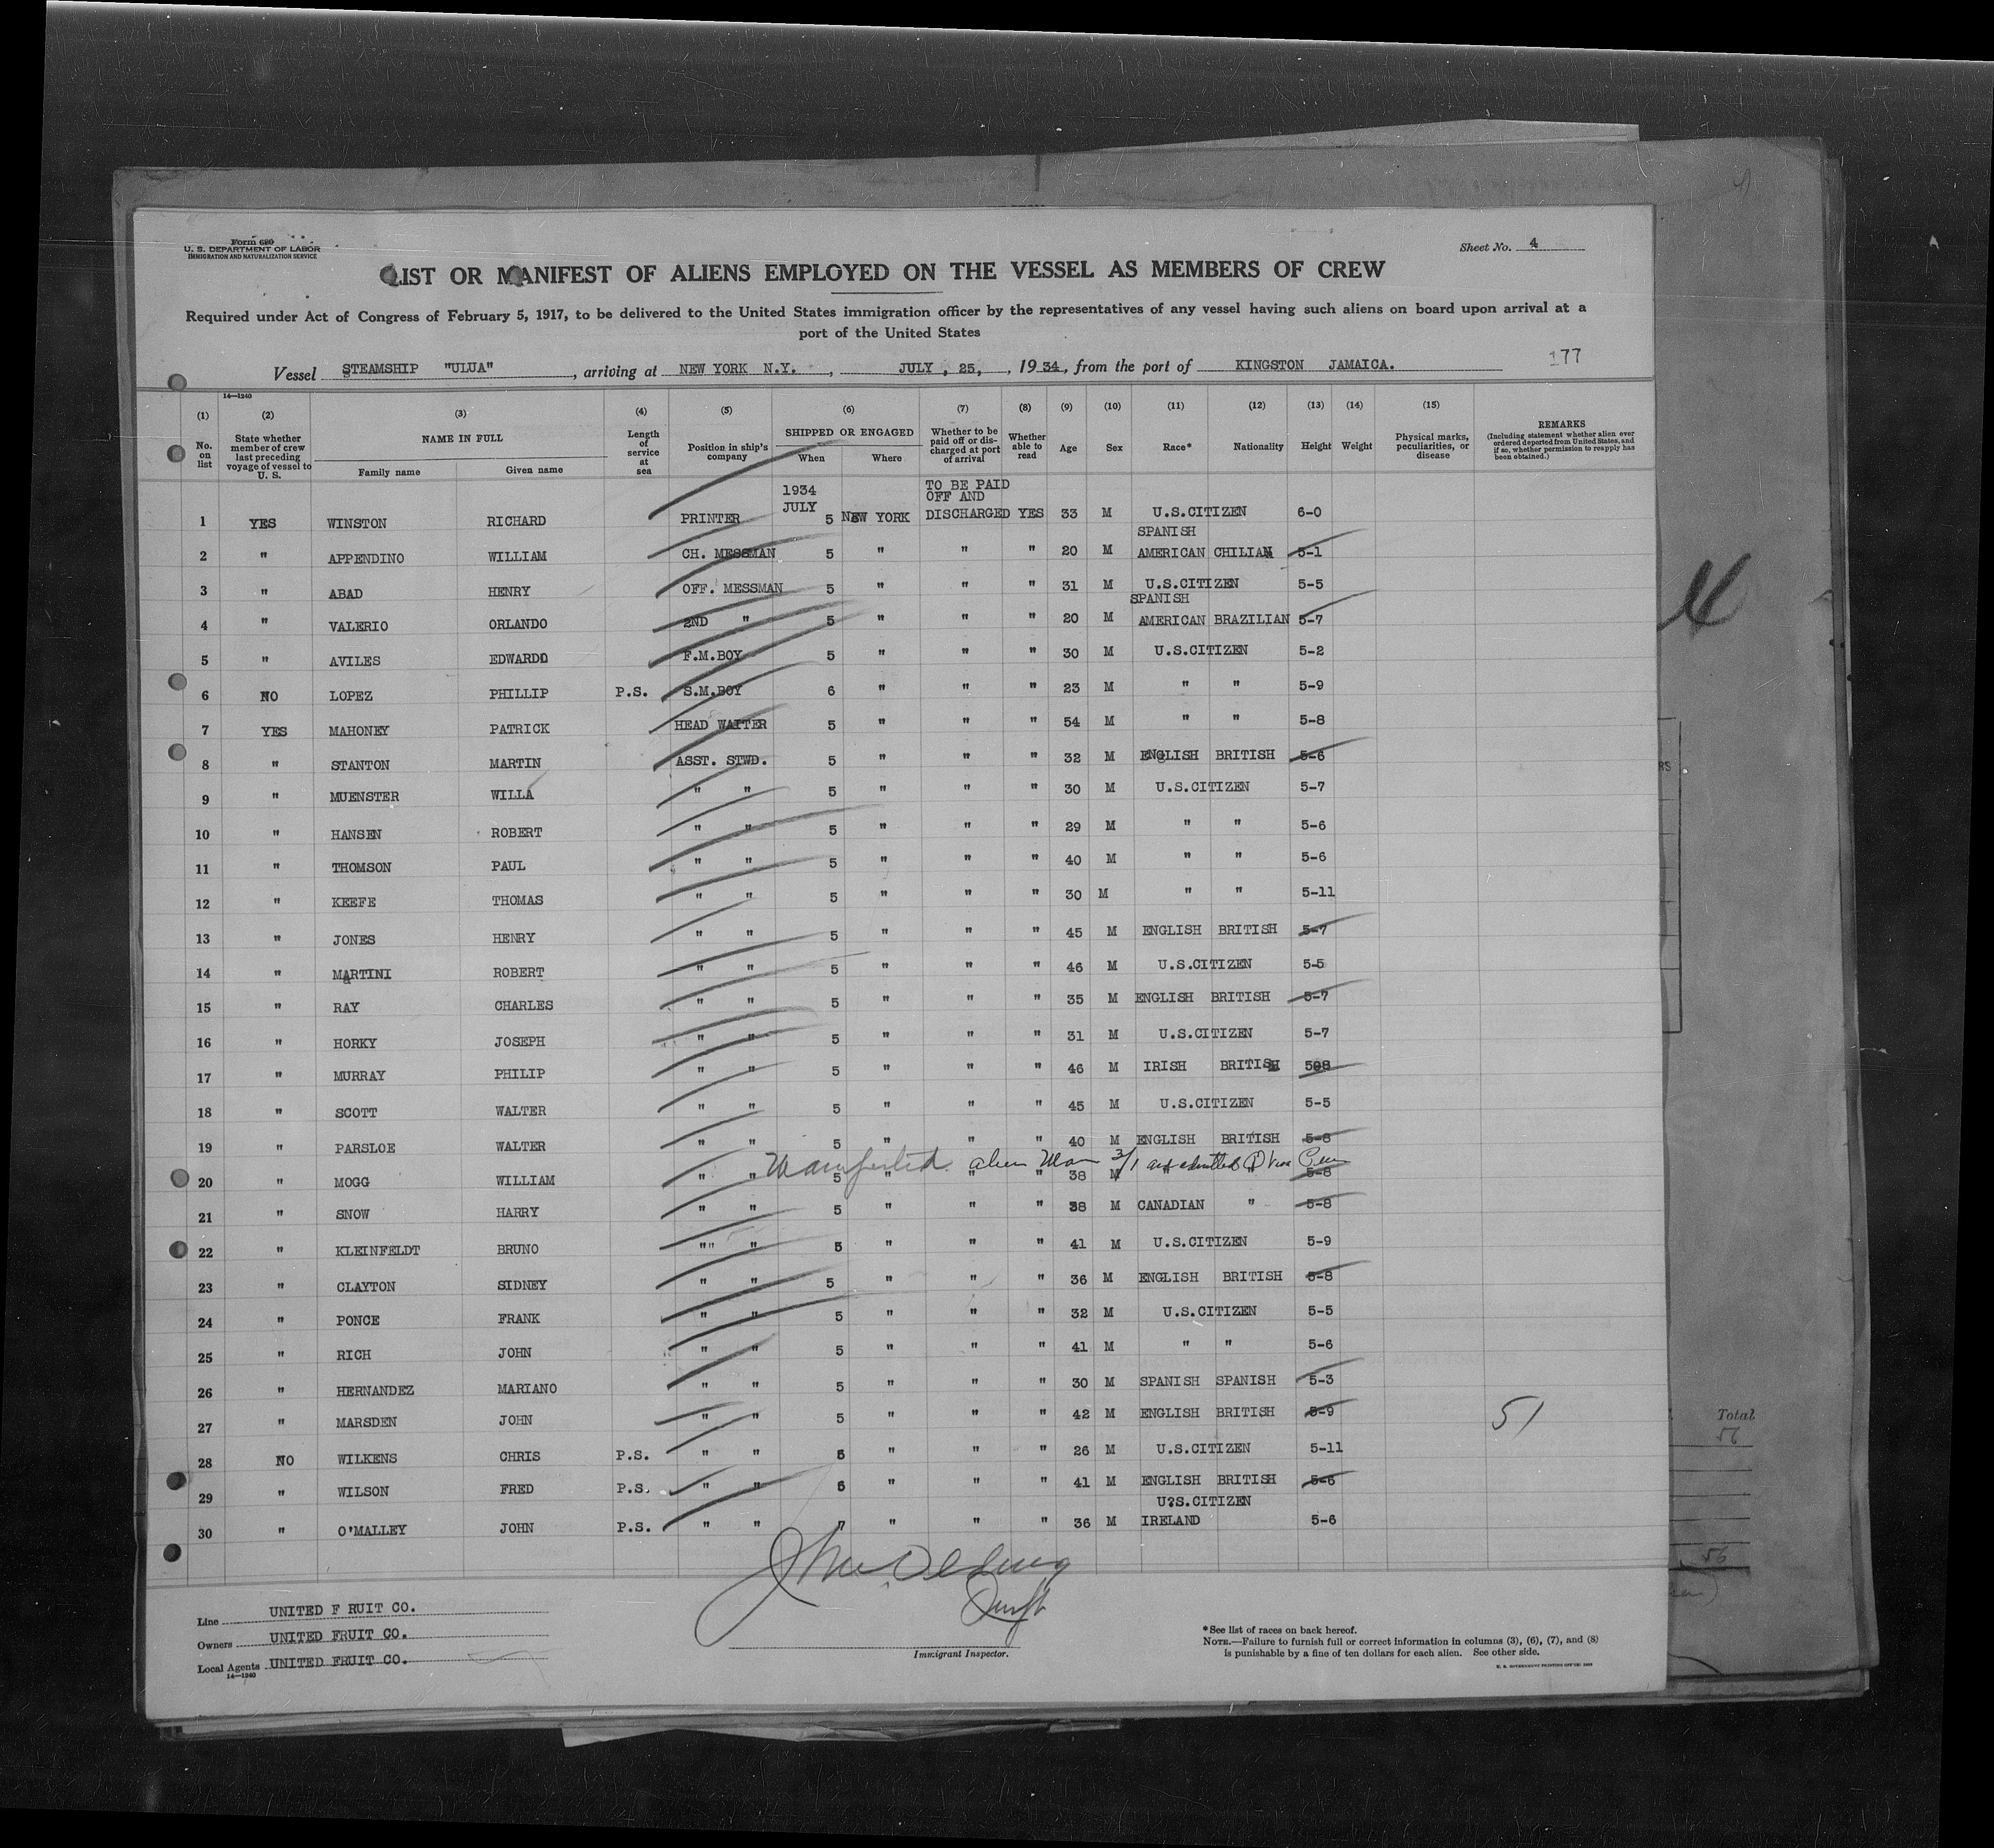 Form 680
U. S. DEPARTMENT OF LABOR
IMMIGRATION AND NATURALIZATION SERVICE
Sheet No. 4
LIST OR MANIFEST OF ALIENS EMPLOYED ON THE VESSEL AS MEMBERS OF CREW
Required under Act of Congress of February 5, 1917, to be delivered to the United States immigration officer by the representatives of any vessel having such aliens on board upon arrival at a
port of the United States
177
Vessel STEAMSHIP "ULUA", arriving at NEW YORK N.Y., JULY, 25, 1934, from the port of KINGSTON JAMAICA.
14—1240
(1) (2) (3) (4) (5) (6) (7) (8) (9) (10) (11) (12) (13) (14) (15)
No. on list | State whether member of crew last preceding voyage of vessel to U. S. | NAME IN FULL Family name Given name | Length of service at sea | Position in ship's company | SHIPPED OR ENGAGED When Where | Whether to be paid off or discharged at port of arrival | Whether able to read | Age | Sex | Race* | Nationality | Height | Weight | Physical marks, peculiarities, or disease | REMARKS (Including statement whether alien ever ordered deported from United States, and if so, whether permission to reapply has been obtained.)
1934 TO BE PAID
JULY OFF AND
1 YES WINSTON RICHARD PRINTER 5 NEW YORK DISCHARGED YES 33 M U.S.CITIZEN 6-0
SPANISH
2 " APPENDINO WILLIAM CH. MESSMAN 5 " " " 20 M AMERICAN CHILIAN 5-1
3 " ABAD HENRY OFF. MESSMAN 5 " " " 31 M U.S.CITIZEN 5-5
SPANISH
4 " VALERIO ORLANDO 2ND " 5 " " " 20 M AMERICAN BRAZILIAN 5-7
5 " AVILES EDWARDO F.M.BOY 5 " " " 30 M U.S.CITIZEN 5-2
6 NO LOPEZ PHILLIP P.S. S.M.BOY 6 " " " 23 M " " 5-9
7 YES MAHONEY PATRICK HEAD WAITER 5 " " " 54 M " " 5-8
8 " STANTON MARTIN ASST. STWD. 5 " " " 32 M ENGLISH BRITISH 5-6
9 " MUENSTER WILLA " " 5 " " " 30 M U.S.CITIZEN 5-7
10 " HANSEN ROBERT " " 5 " " " 29 M " " 5-6
11 " THOMSON PAUL " " 5 " " " 40 M " " 5-6
12 " KEEFE THOMAS " " 5 " " " 30 M " " 5-11
13 " JONES HENRY " " 5 " " " 45 M ENGLISH BRITISH 5-7
14 " MARTINI ROBERT " " 5 " " " 46 M U.S.CITIZEN 5-5
15 " RAY CHARLES " " 5 " " " 35 M ENGLISH BRITISH 5-7
16 " HORKY JOSEPH " " 5 " " " 31 M U.S.CITIZEN 5-7
17 " MURRAY PHILIP " " 5 " " " 46 M IRISH BRITISH 508
18 " SCOTT WALTER " " 5 " " " 45 M U.S.CITIZEN 5-5
19 " PARSLOE WALTER " " 5 " " " 40 M ENGLISH BRITISH 5-8
Manifested alien
20 " MOGG WILLIAM " " 5 " " " 38 M " " 5-8
21 " SNOW HARRY " " 5 " " " 38 M CANADIAN " 5-8
22 " KLEINFELDT BRUNO "" " 5 " " " 41 M U.S.CITIZEN 5-9
23 " CLAYTON SIDNEY " " 5 " " " 36 M ENGLISH BRITISH 5-8
24 " PONCE FRANK " " 5 " " " 32 M U.S.CITIZEN 5-5
25 " RICH JOHN " " 5 " " " 41 M " " 5-6
26 " HERNANDEZ MARIANO " " 5 " " " 30 M SPANISH SPANISH 5-3
27 " MARSDEN JOHN " " 5 " " " 42 M ENGLISH BRITISH 5-9 51
28 NO WILKENS CHRIS P.S. " " 6 " " " 26 M U.S.CITIZEN 5-11
29 " WILSON FRED P.S. " " 6 " " " 41 M ENGLISH BRITISH 5-6
U?S.CITIZEN
30 " O'MALLEY JOHN P.S. " " 7 " " " 36 M IRELAND 5-6
Line UNITED F RUIT CO.
Owners UNITED FRUIT CO.
Local Agents UNITED FRUIT CO.
14—1240
Immigrant Inspector.
*See list of races on back hereof.
NOTE.—Failure to furnish full or correct information in columns (3), (6), (7), and (8)
is punishable by a fine of ten dollars for each alien. See other side.
Total
56
56